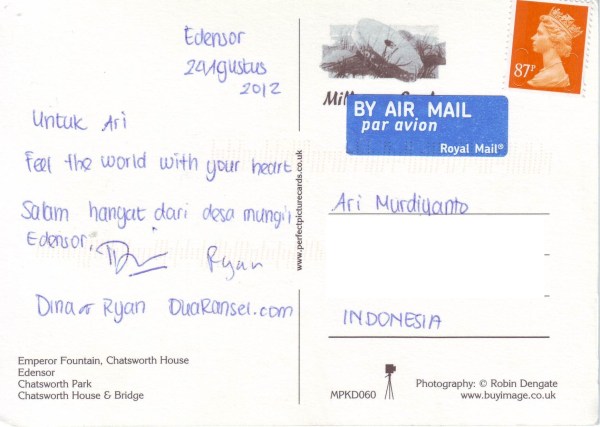 Edensor
24 Agustus
2012
Untuk Ari
Feel the world with your heart
Salam hangat dari desa mungil
Edensor.
Ryan
Dina & Ryan DuaRansel.com
Emperor Fountain, Chatsworth House
Edensor
Chatsworth Park
Chatsworth House & Bridge
www.perfectpicturecards.co.uk
87P
BY AIR MAIL
par avion
Royal Mail®
Ari Murdiyanto
INDONESIA
MPKD060
Photography: © Robin Dengate
www.buyimage.co.uk